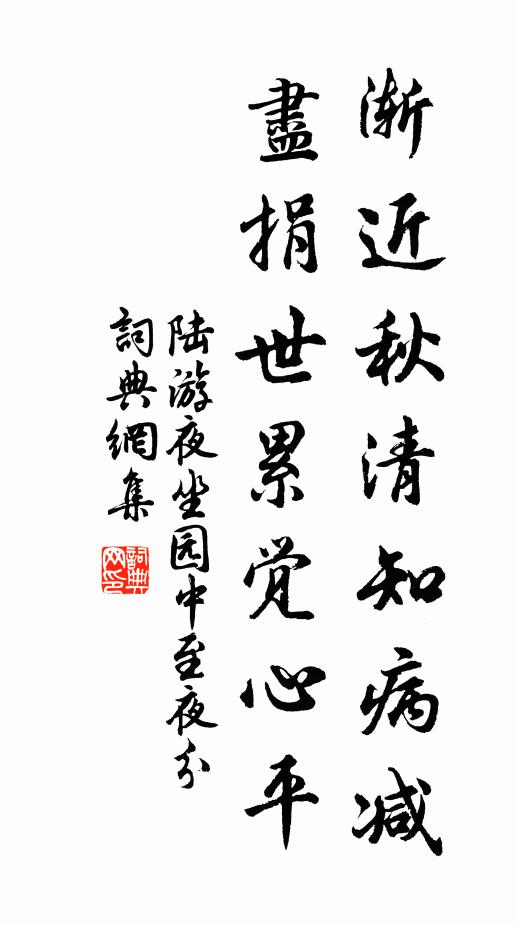 渐近秋清知病减
盡捐世累觉心平
陆游夜坐园中至夜分
詞典網集
詞典网印